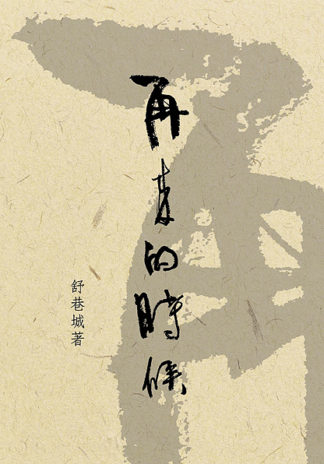 再来的時候
舒巷城著